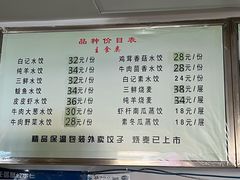 品种价目表
主食类
白记水饺 32元/份
纯羊水饺 34元/份
三鲜水饺 32元/份
鲅鱼水饺 34元/份
皮皮虾水饺 36元/份
牛肉大葱水饺 30元/份
牛肉野菜水饺 28元/份
鸡茸香菇水饺 28元/份
牛肉茴香水饺 28元/份
白记素水饺 24元/份
三鲜烧麦 38元/屉
纯羊烧麦 34元/屉
虾杆南瓜蒸饺 28元/屉
素冬瓜蒸饺 18元/屉
精品保温包装外卖饺子 烧麦已上市